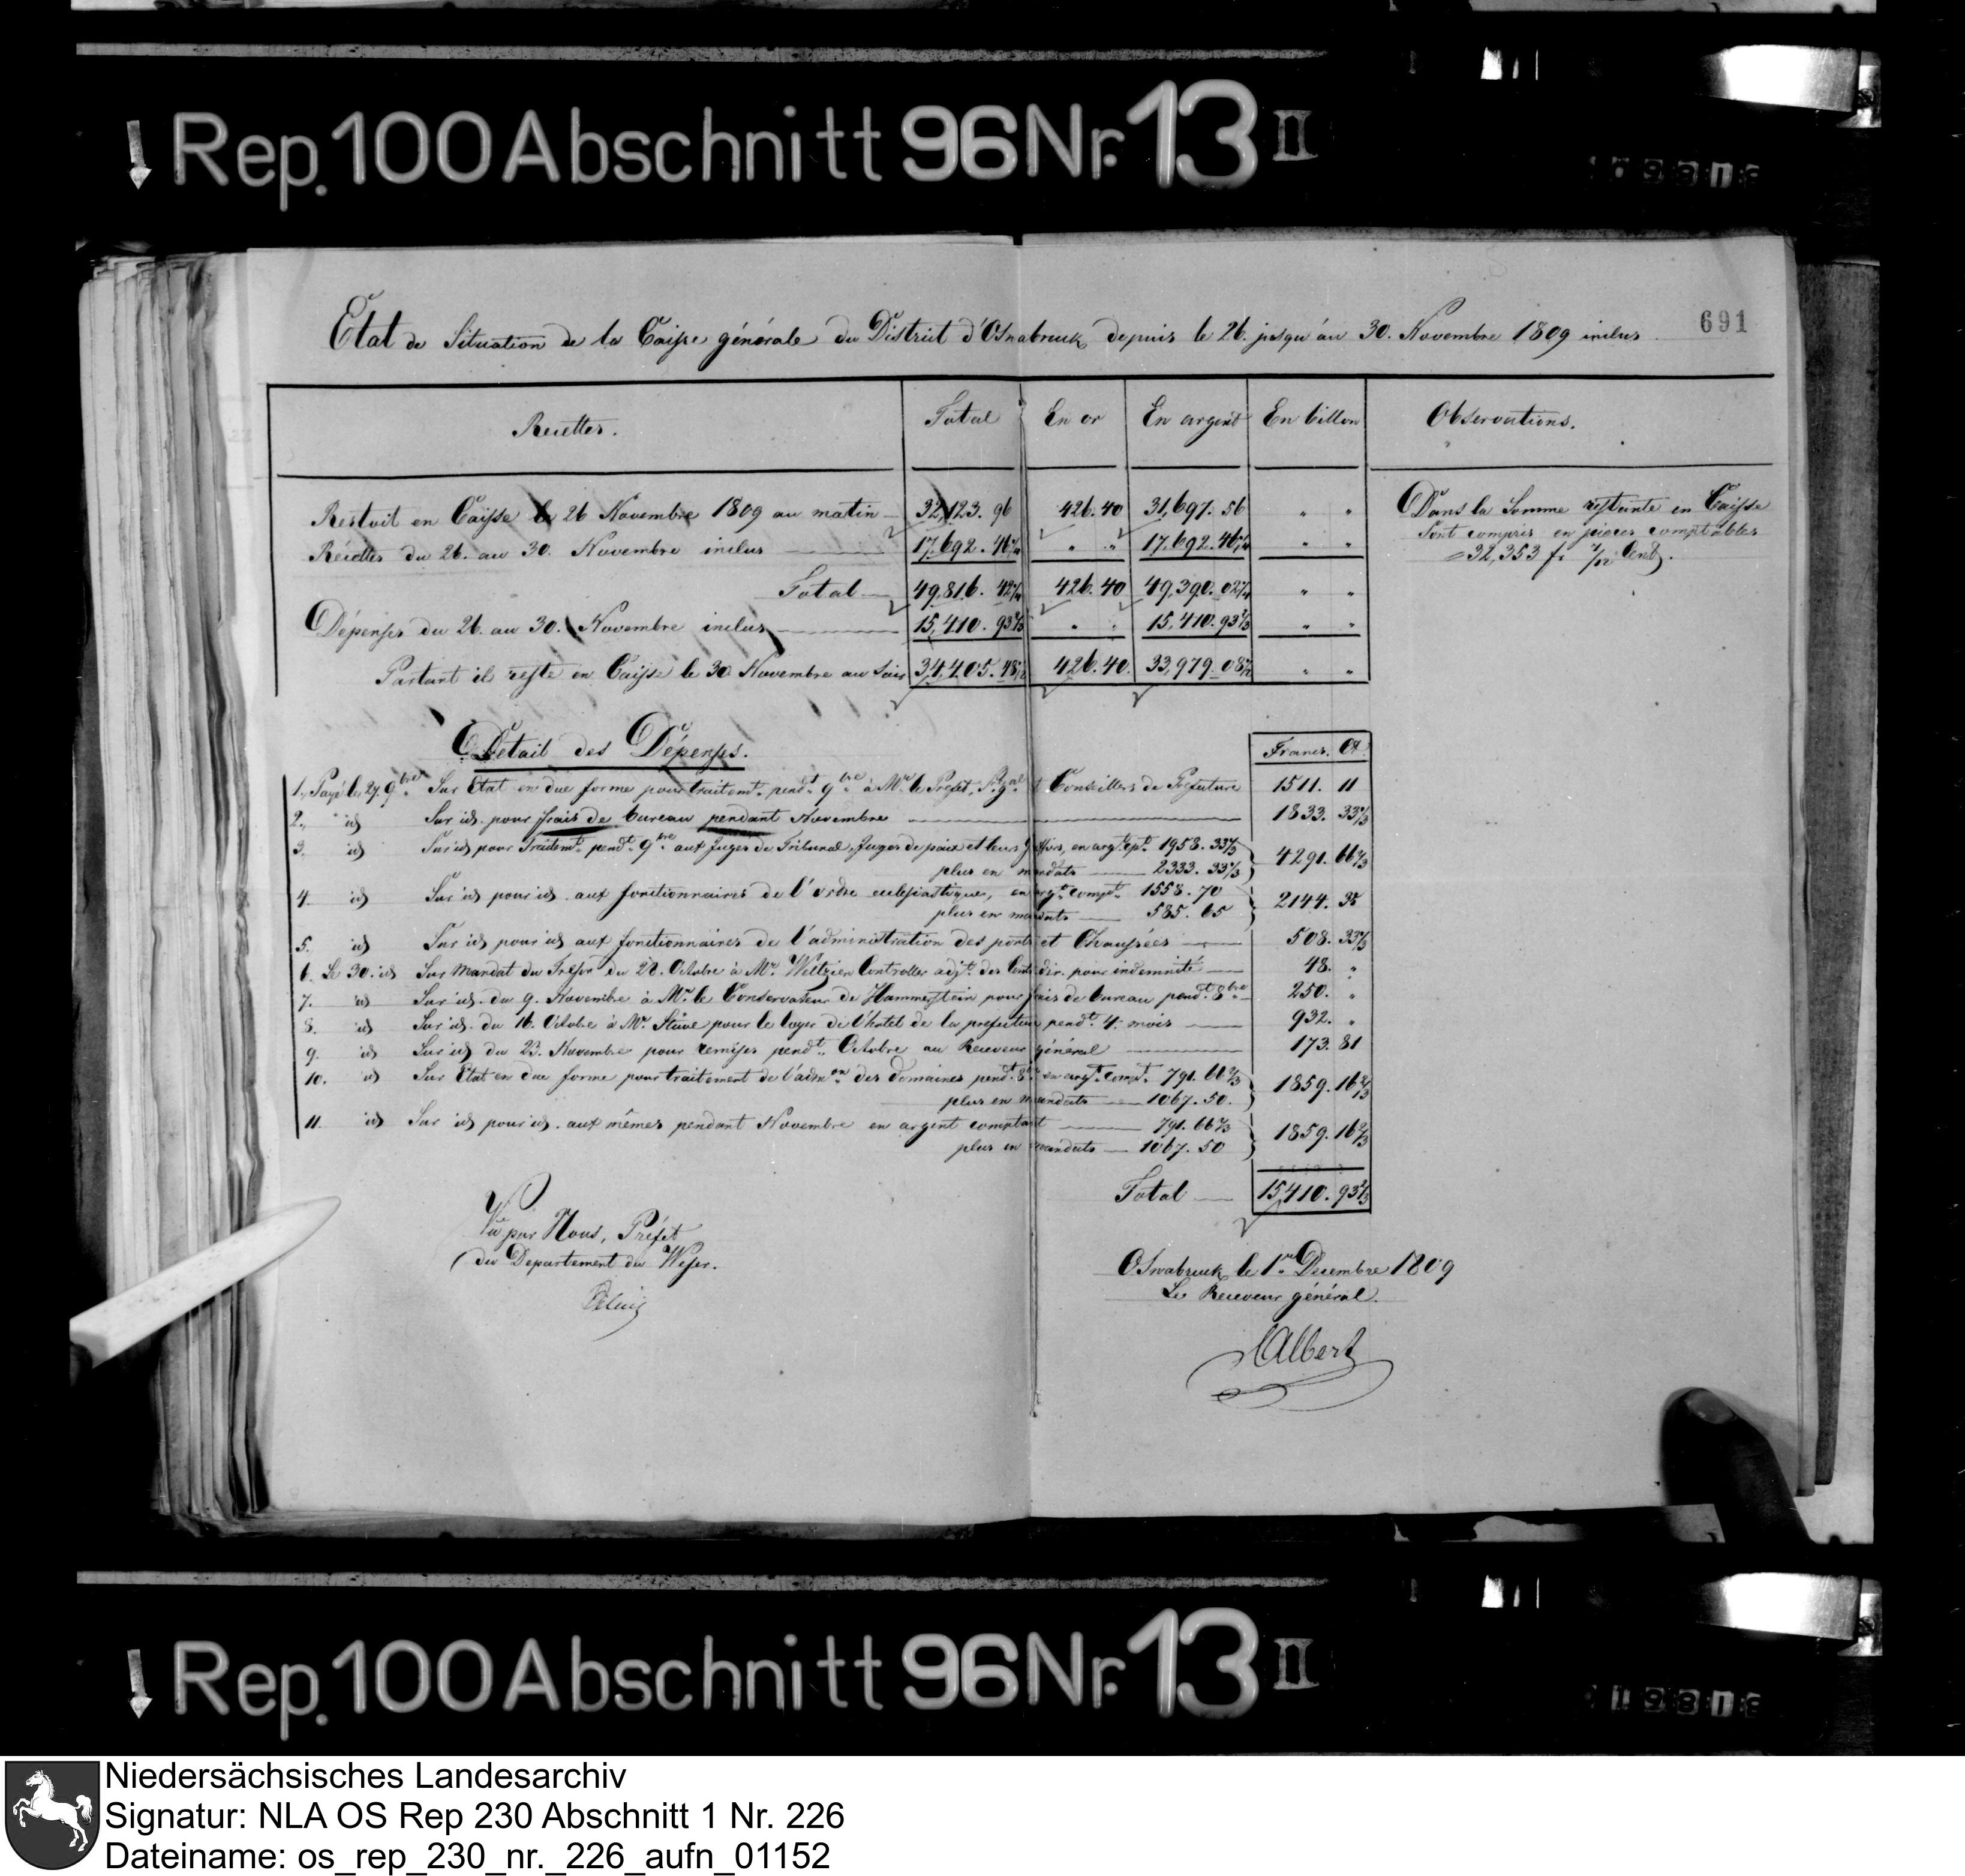 Rep. 100 Abschnitt 96 Nr. 13 II
691
Etat de Situation de la Caisse générale du District d'Osnabruck depuis le 26. jusqu'au 30. Novembre 1809 inclus
Recettes. Total En or En argent En billon Observations.
Restoit en Caisse le 26 Novembre 1809 au matin 32,123. 96 426. 40 31,697. 56 " "
Recettes du 26. au 30. Novembre inclus 17,692. 46 " " 17,692. 46 " "
Total 49,816. 42 426. 40 49,390. 02 " "
Dépenses du 26. au 30. Novembre inclus 15,410. 93 2/3 " " 15,410. 93 2/3 " "
Partant il reste en Caisse le 30 Novembre au Soir 34,405. 48 426. 40. 33,979. 08 " "
Dans la Somme restante en Caisse
sont compris en pièces comptables
= 32,353 fr. Cent.
Détail des Dépenses.
Francs. Ct.
1., Payé le 27. 9bre Sur Etat en due forme pour traitemt. pendt. 9bre à Mr. le Préfet, S. Gral et Conseillers de Préfecture 1511. 11
2., id Sur id. pour frais de bureau pendant Novembre 1833. 33 1/3
3. id Sur id pour Traitemt. pendt. 9bre aux Juges de Tribunal, Juges de paix et leurs Greffiers, en argt. cpt. 1958. 33 1/3
plus en mandats 2333. 33 1/3 } 4291. 66 2/3
4. id Sur id pour id. aux fonctionnaires de l'ordre eclesiastique, en argt. compt. 1558. 70
plus en mandats 585. 65 } 2144. 35
5. id Sur id pour id aux fonctionnaires de l'administration des ponts et Chaussées 508. 33 1/3
6. Le 30. id Sur Mandat du Tresor du 28. Octobre à Mr. Weltzien Controlleur adjt. des Contr. dir. pour indemnité 48. "
7. id Sur id. du 9. Novembre à Mr. le Conservateur de Hammerstein pour frais de bureau pendt. 8bre 250. "
8. id Sur id. du 16. Octobre à Mr. Stüve pour le loyer de l'hotel de la prefecture pendt. 4. mois 932. "
9. id Sur id du 23. Novembre pour remises pendt. Octobre au Receveur général 173. 81
10. id Sur Etat en due forme pour traitement de l'admon. des domaines pendt. 8bre en argt. compt. 791. 66 2/3
plus en mandats 1067. 50. } 1859. 16 2/3
11. id Sur id pour id. aux mêmes pendant Novembre en argent comptant 791. 66 2/3
plus en mandats 1067. 50 } 1859. 16 2/3
Total 15,410. 93 2/3
Vu par Nous, Préfet
du Departement du Weser.
Osnabruck le 1er Decembre 1809
Le Receveur général.
Albert
Rep. 100 Abschnitt 96 Nr. 13 II
Niedersächsisches Landesarchiv
Signatur: NLA OS Rep 230 Abschnitt 1 Nr. 226
Dateiname: os_rep_230_nr._226_aufn_01152